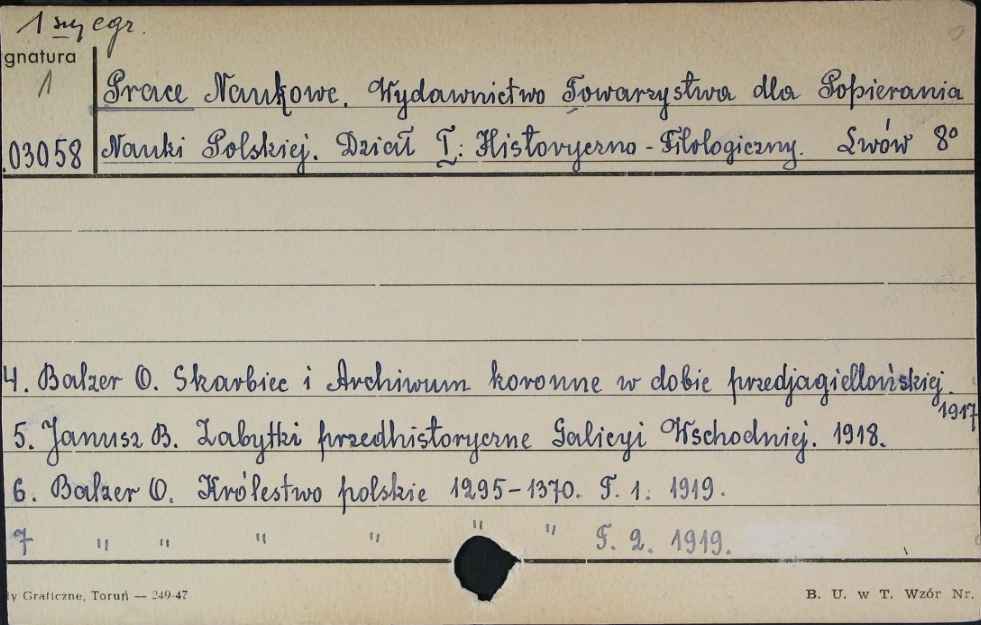 1 szy egz.
gnatura
1
03058
Prace Naukowe. Wydawnictwo Towarzystwa dla Popierania
Nauki Polskiej. Dział I: Historyczno-Filologiczny. Lwów 8º
4. Balzer O. Skarbiec i Archiwum koronne w dobie przedjagiellońskiej.
1917
5. Janusz B. Zabytki przedhistoryczne Galicyi Wschodniej. 1918.
6. Balzer O. Królestwo polskie 1295-1370. T. 1. 1919.
7 " " " " " " T. 2. 1919.
y Graficzne, Toruń — 249-47
B. U. w T. Wzór Nr.